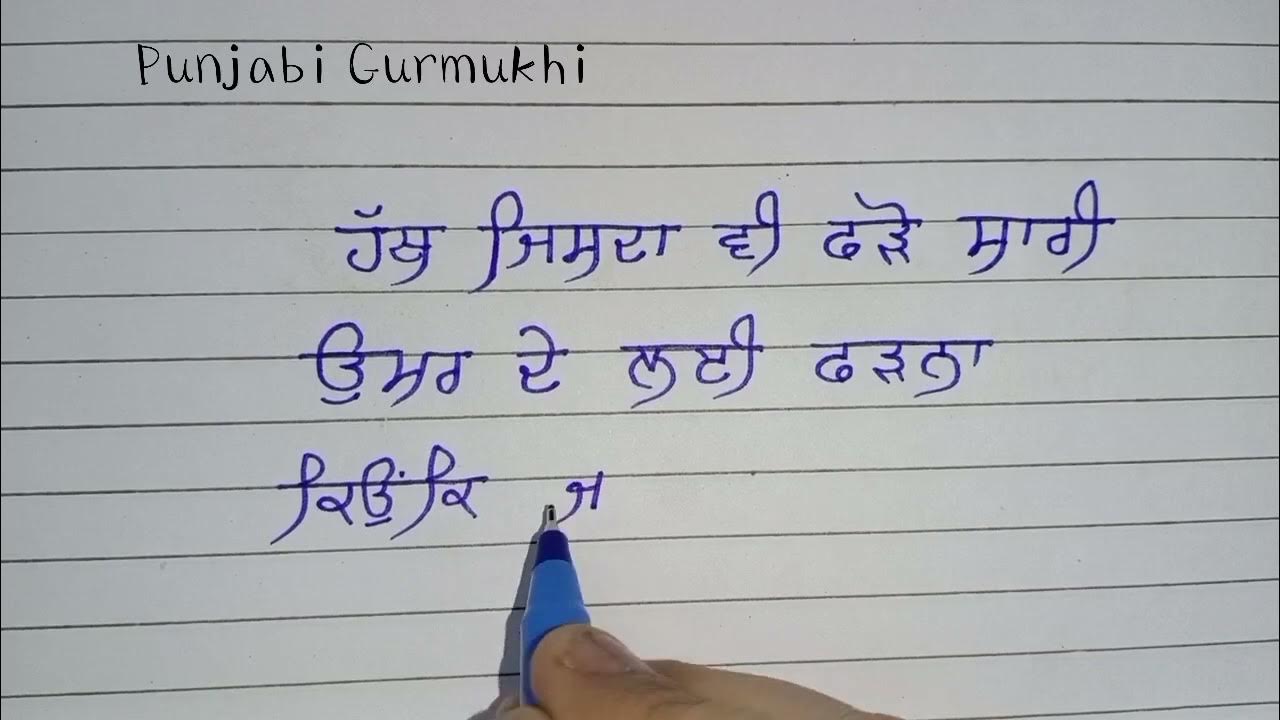 Punjabi Gurmukhi
ਹੱਥ ਜਿਸਦਾ ਵੀ ਫੜੋ ਸਾਰੀ
ਉਮਰ ਦੇ ਲਈ ਫੜਨਾ
ਕਿਉਂਕਿ